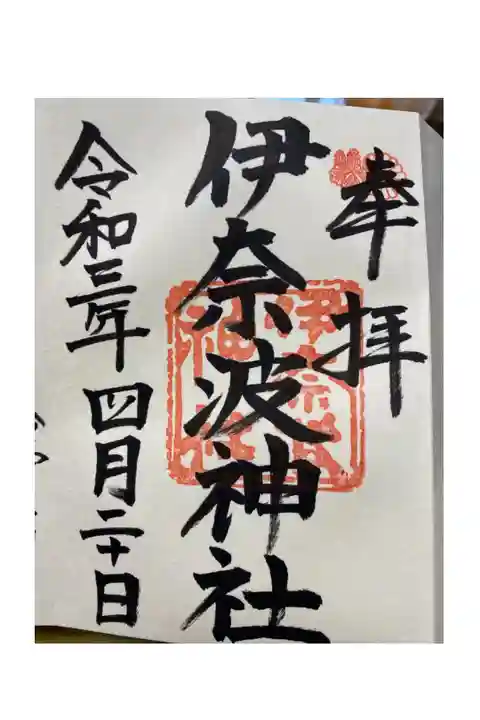 奉拝
伊奈波神社
令和三年四月二十日